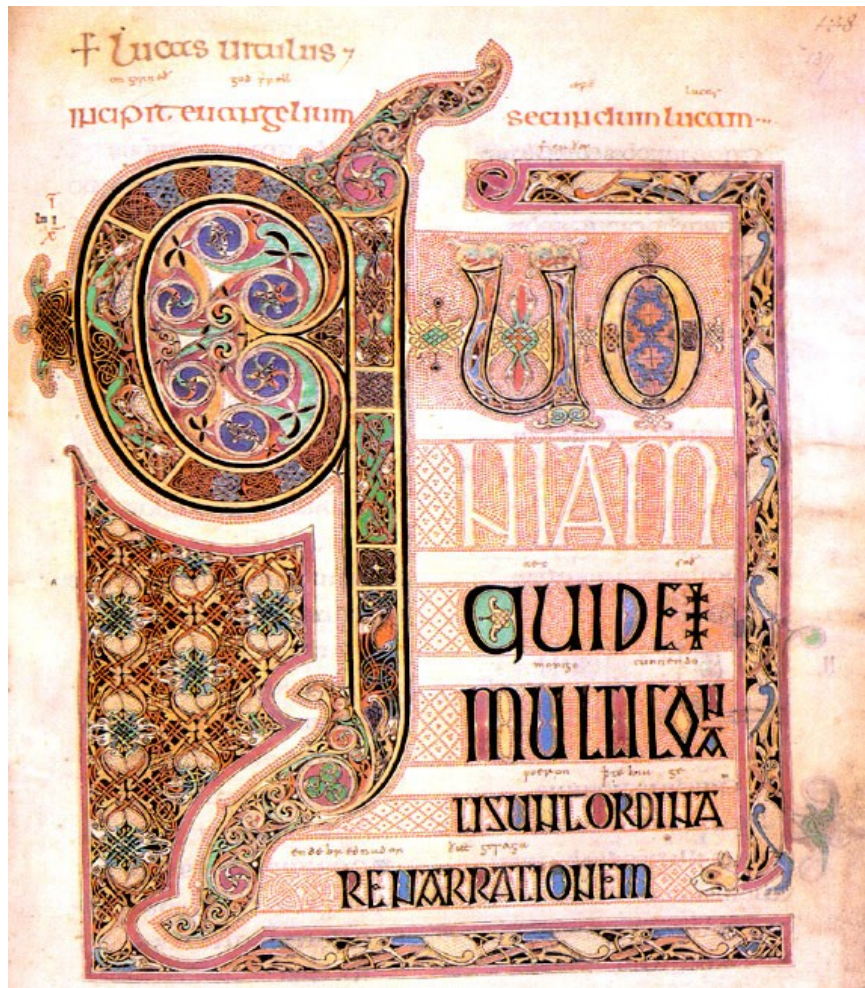 + Lucas uitulus
incipit euangelium secundum lucam
QUO
NIAM
QUIDEM
monigo cunnendo
MULTI CONA
TI SUNT ORDINA
RE NARRATIONEM